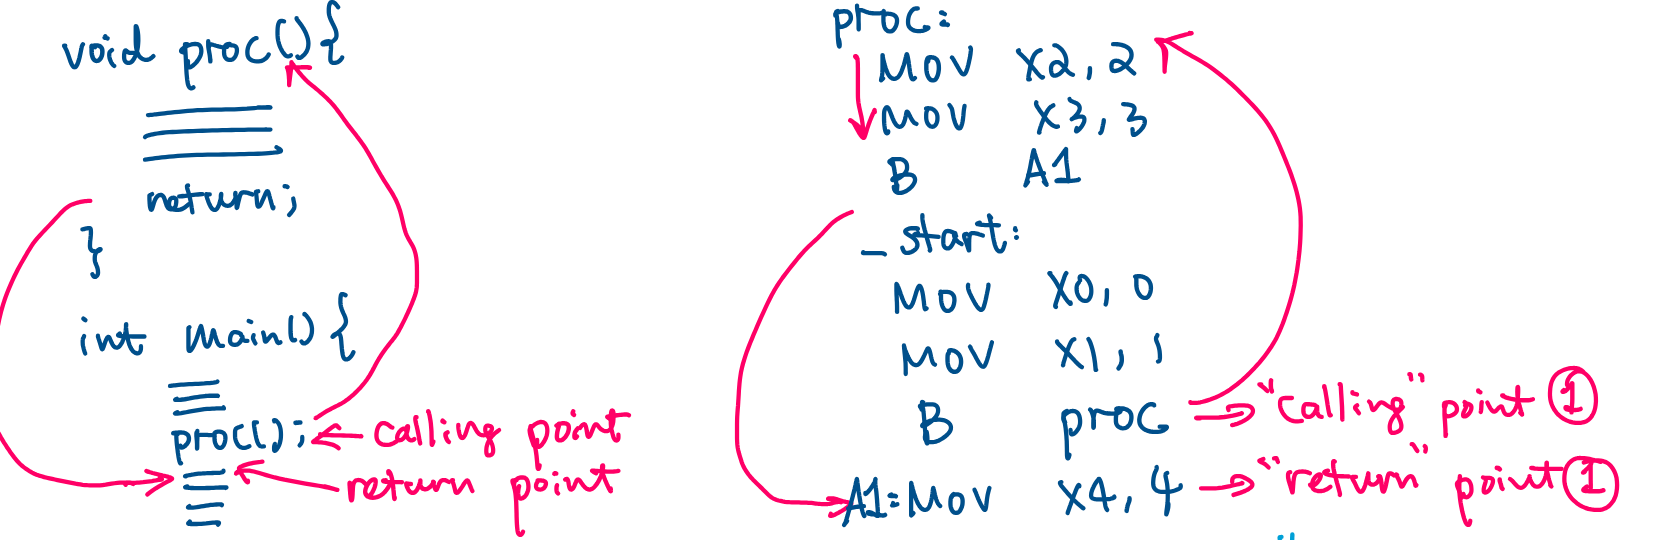 void proc(){
return;
}
int main(){
proc(); ← calling point
return point
proc:
MOV X2, 2
MOV X3, 3
B A1
_start:
MOV X0, 0
MOV X1, 1
B proc → "calling" point ①
A1: MOV X4, 4 → "return" point ①